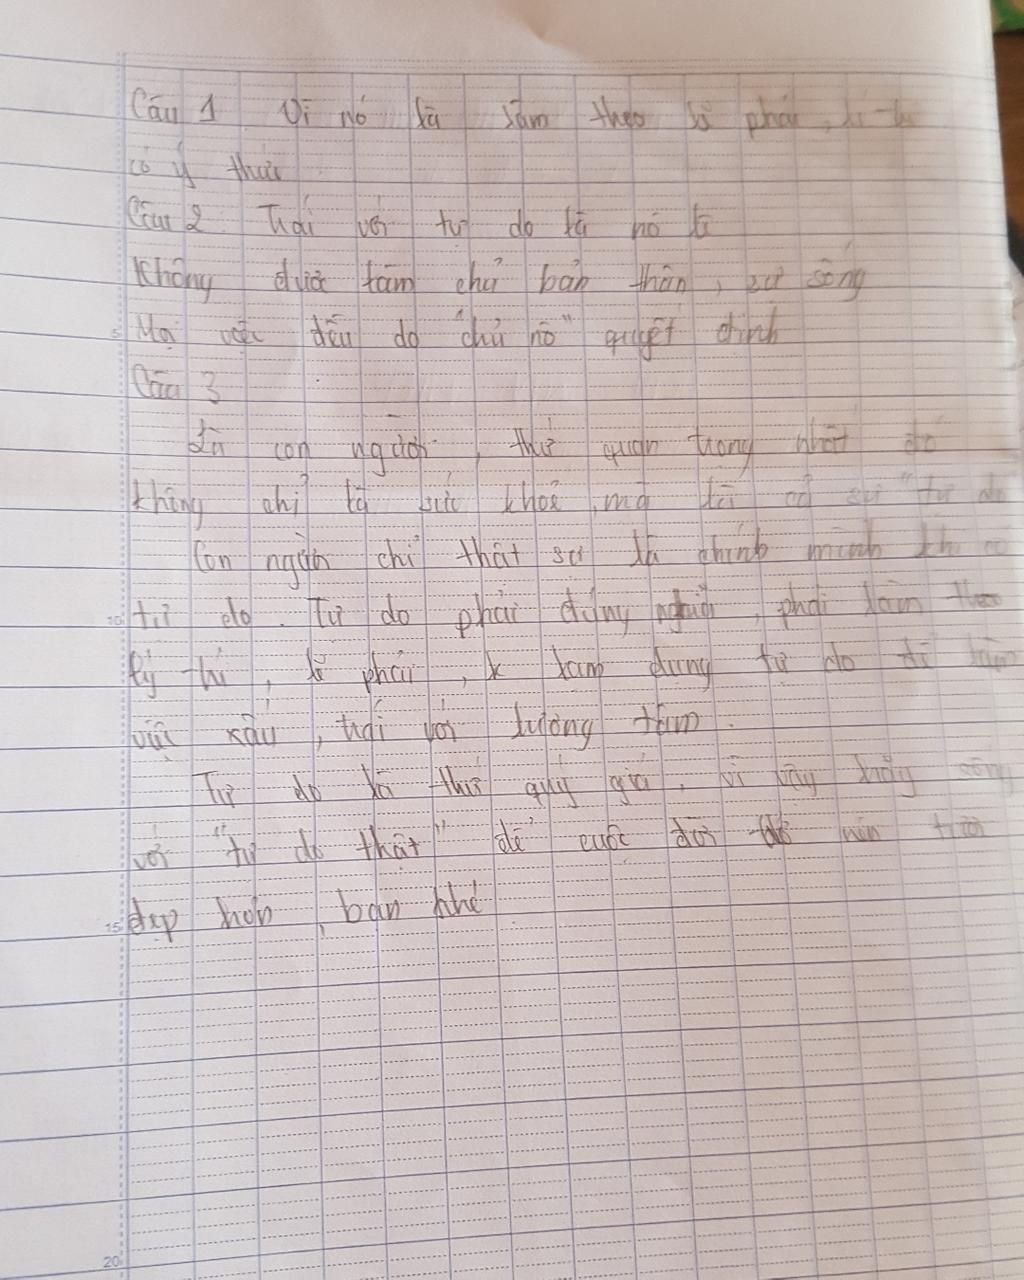 Câu 1 Vì nó là làm theo lẽ phải, lí
có ý thức
Câu 2. Trái với tự do là nô lệ
Không được làm chủ bản thân, sự sống
Mọi việc đều do "chủ nô" quyết định
Câu 3
Là con người, thứ quan trọng nhất đó
không chỉ là sức khoẻ, mà là cả sự "tự do
Con người chỉ thật sự là chính mình khi có
tự do. Tự do phải đúng nghĩa, phải làm theo
lý trí, lẽ phải, k lạm dụng tự do để làm
việc xấu, trái với lương tâm.
Tự do là thứ quý giá, vì vậy hãy sống
với "tự do thật" để cuộc đời tươi
đẹp hơn, bạn nhé
5
10
15
20